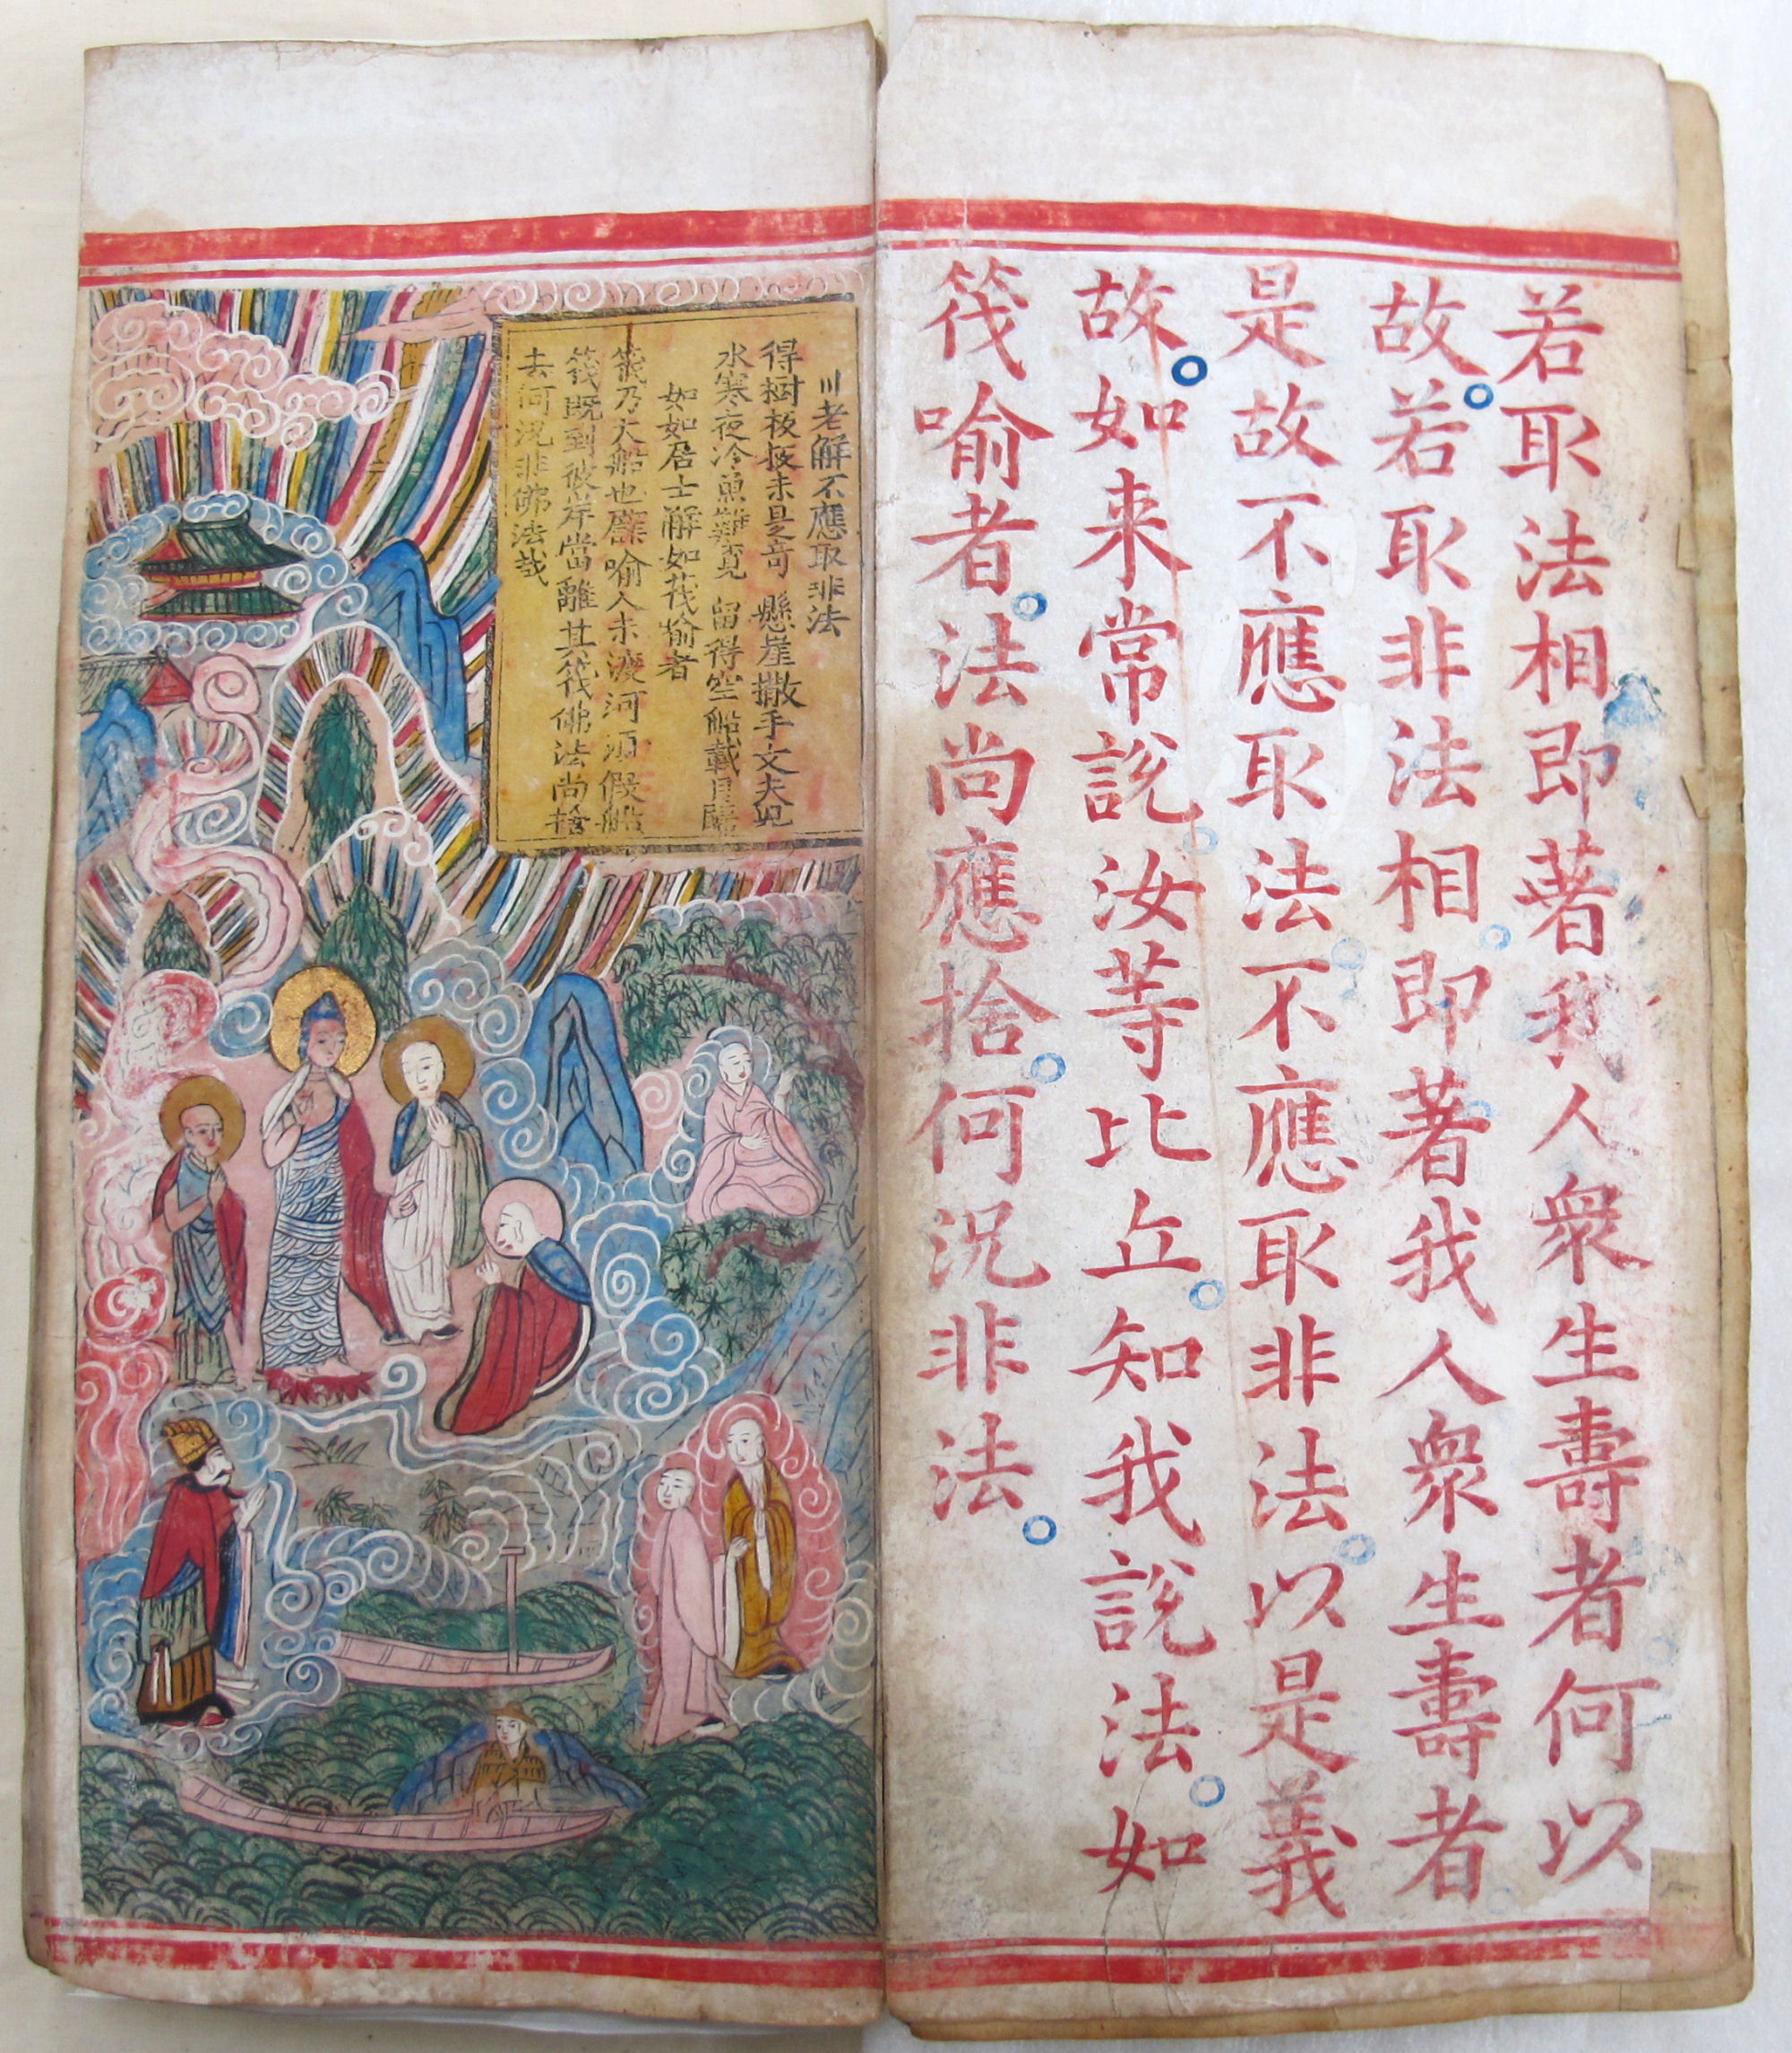 若取法相即著我人衆生壽者。何以
故。若取非法相。即著我人衆生壽者。
是故不應取法。不應取非法。以是義
故。如来常說。汝等比丘。知我說法。如
筏喻者。法尚應捨。何況非法。
川老解不應取非法
得樹板枝未是竒 懸崖撒手丈夫兒
水寒夜冷魚難覓 留得空船載月歸
如如居士解如筏喻者
筏乃大船也譬喻人未渡河須假船
筏既到彼岸當離其筏佛法尚捨
去何況非佛法哉